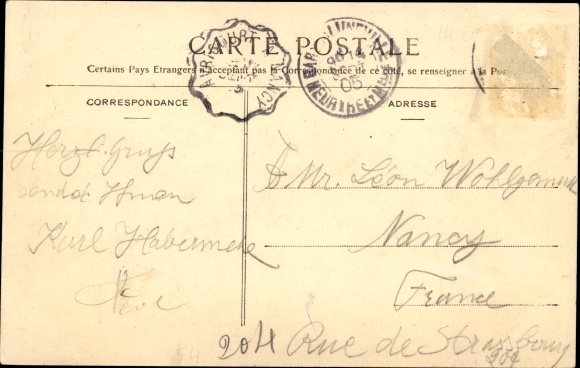 CARTE POSTALE
Certains Pays Etrangers n'acceptant pas la Correspondance de ce côté, se renseigner à la Pos
CORRESPONDANCE
ADRESSE
AVRICOURT A NANCY
LUNÉVILLE
05
MEURTHE ET M
Herzl. Gruß
sendet Ihnen
Karl Habermehl
à Mr. Léon Wohlgemuth
Nancy
France
204 Rue de Strasbourg
204